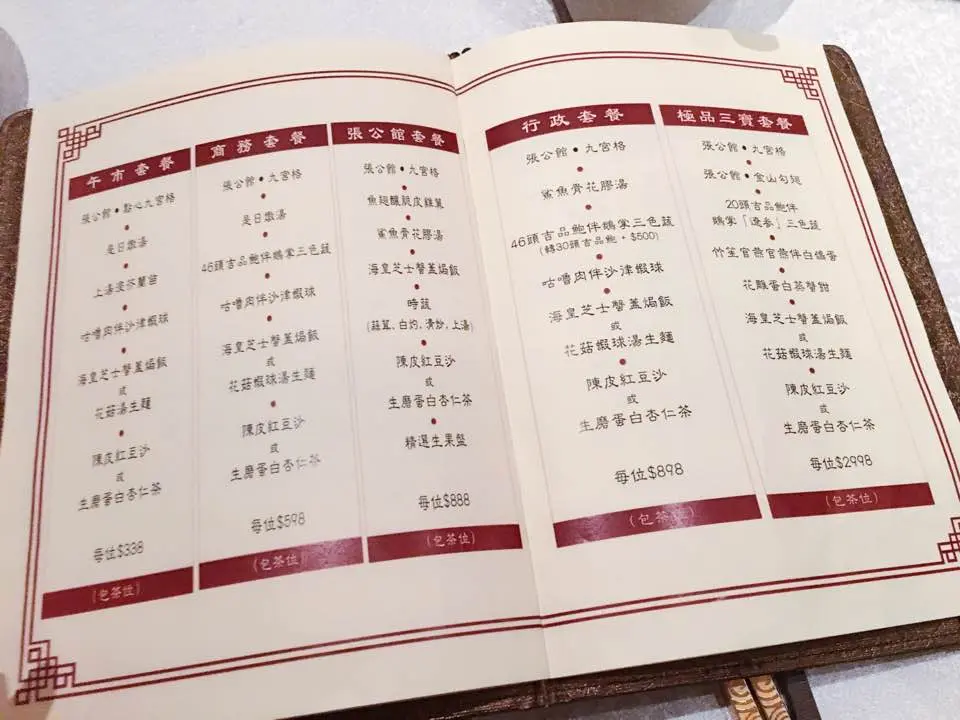 午市套餐
張公館•點心九宮格
是日燉湯
上湯浸芥蘭苗
咕嚕肉伴沙律蝦球
海皇芝士蟹蓋焗飯
或
花菇湯生麵
陳皮紅豆沙
或
生磨蛋白杏仁茶
每位$338
(包茶位)
商務套餐
張公館•九宮格
是日燉湯
46頭吉品鮑伴鵝掌三色蔬
咕嚕肉伴沙律蝦球
海皇芝士蟹蓋焗飯
或
花菇蝦球湯生麵
陳皮紅豆沙
或
生磨蛋白杏仁茶
每位$598
(包茶位)
張公館套餐
張公館•九宮格
魚翅釀脆皮雞翼
鯊魚骨花膠湯
海皇芝士蟹蓋焗飯
時蔬
(蒜茸、白灼、清炒、上湯)
陳皮紅豆沙
或
生磨蛋白杏仁茶
精選生果盤
每位$888
(包茶位)
行政套餐
張公館•九宮格
鯊魚骨花膠湯
46頭吉品鮑伴鵝掌三色蔬
(轉30頭吉品鮑 + $500)
咕嚕肉伴沙律蝦球
海皇芝士蟹蓋焗飯
或
花菇蝦球湯生麵
陳皮紅豆沙
或
生磨蛋白杏仁茶
每位$898
(包茶位)
極品三寶套餐
張公館•九宮格
張公館•金山勾翅
20頭吉品鮑伴
鵝掌「遼參」三色蔬
竹笙官燕官燕伴白鴿蛋
花雕蛋白蒸蟹鉗
海皇芝士蟹蓋焗飯
或
花菇蝦球湯生麵
陳皮紅豆沙
或
生磨蛋白杏仁茶
每位$2998
(包茶位)